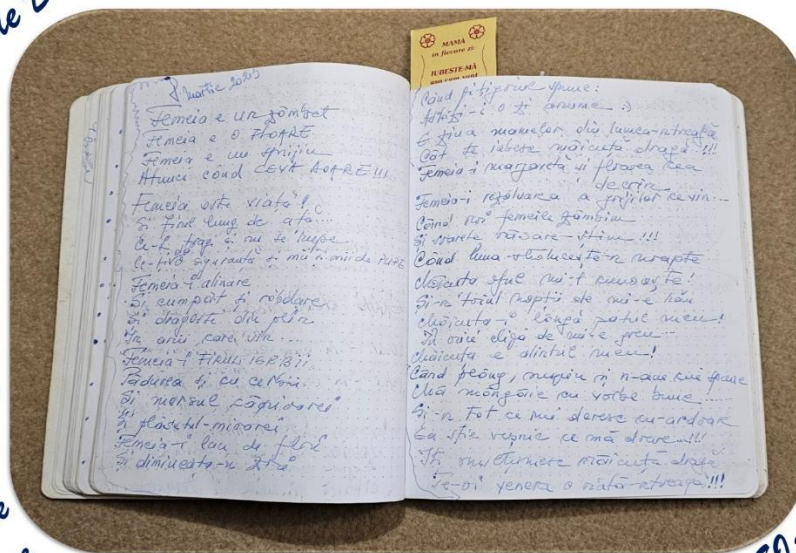 MAMA
în fiecare zi:
IUBEȘTE-MĂ
8 martie
Femeia e un zâmbet
Femeia e o FLOARE
Femeia e un sprijin
Atunci când CEVA DOARE!!!
Femeia este viață!
Și firul lung de ață...
Ce-l tragi și nu se rupe
Ce-ți dă siguranță și mii n mii de
Femeia-i alinare
Și cumpăt și răbdare
Și dragoste din plin
În anii care vin...
Femeia-i FIRUL IERBII
Pădurea și cu cerbii
Și mersul căprioarei
Și plânsetul-mioarei
Femeia-i lan de flori
Și dimineața-n zori
Când pițigoiul spune:
Astăzi-i o zi anume :)
E ziua mamelor din lumea-ntreagă
Cât te iubesc măicuță dragă!!!
Femeia-i margaretă și floarea cea
de crin
Femeia-i rezolvarea a grijilor ce vin...
Când noi femeile zâmbim
Și soarele răsare-știm!!!
Când luna strălucește-n noapte
Măicuța
Și-n toiul nopții de mi-e rău
Măicuța-i lângă patul meu!
În orice clipă de mi-e greu
Măicuța e alintul meu!
Când plâng, suspin și n-am cui spune
Mă mângâie cu vorbe bune
Și-n tot ce îmi doresc cu-ardoare
Ea știe veșnic ce mă doare...!!!
Îți mulțumesc măicuță dragă
Te-oi venera o viață-ntreagă!!!